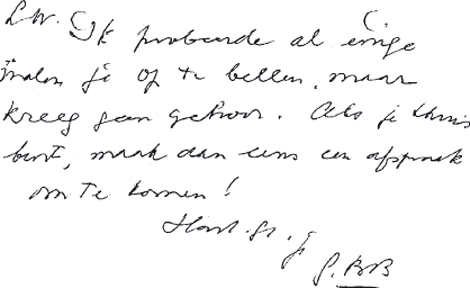 L.W. Ik probeerde al enige
malen je op te bellen, maar
kreeg geen gehoor. Als je thuis
bent, maak dan eens een afspraak
om te komen!
Hart. gr.
G. BB